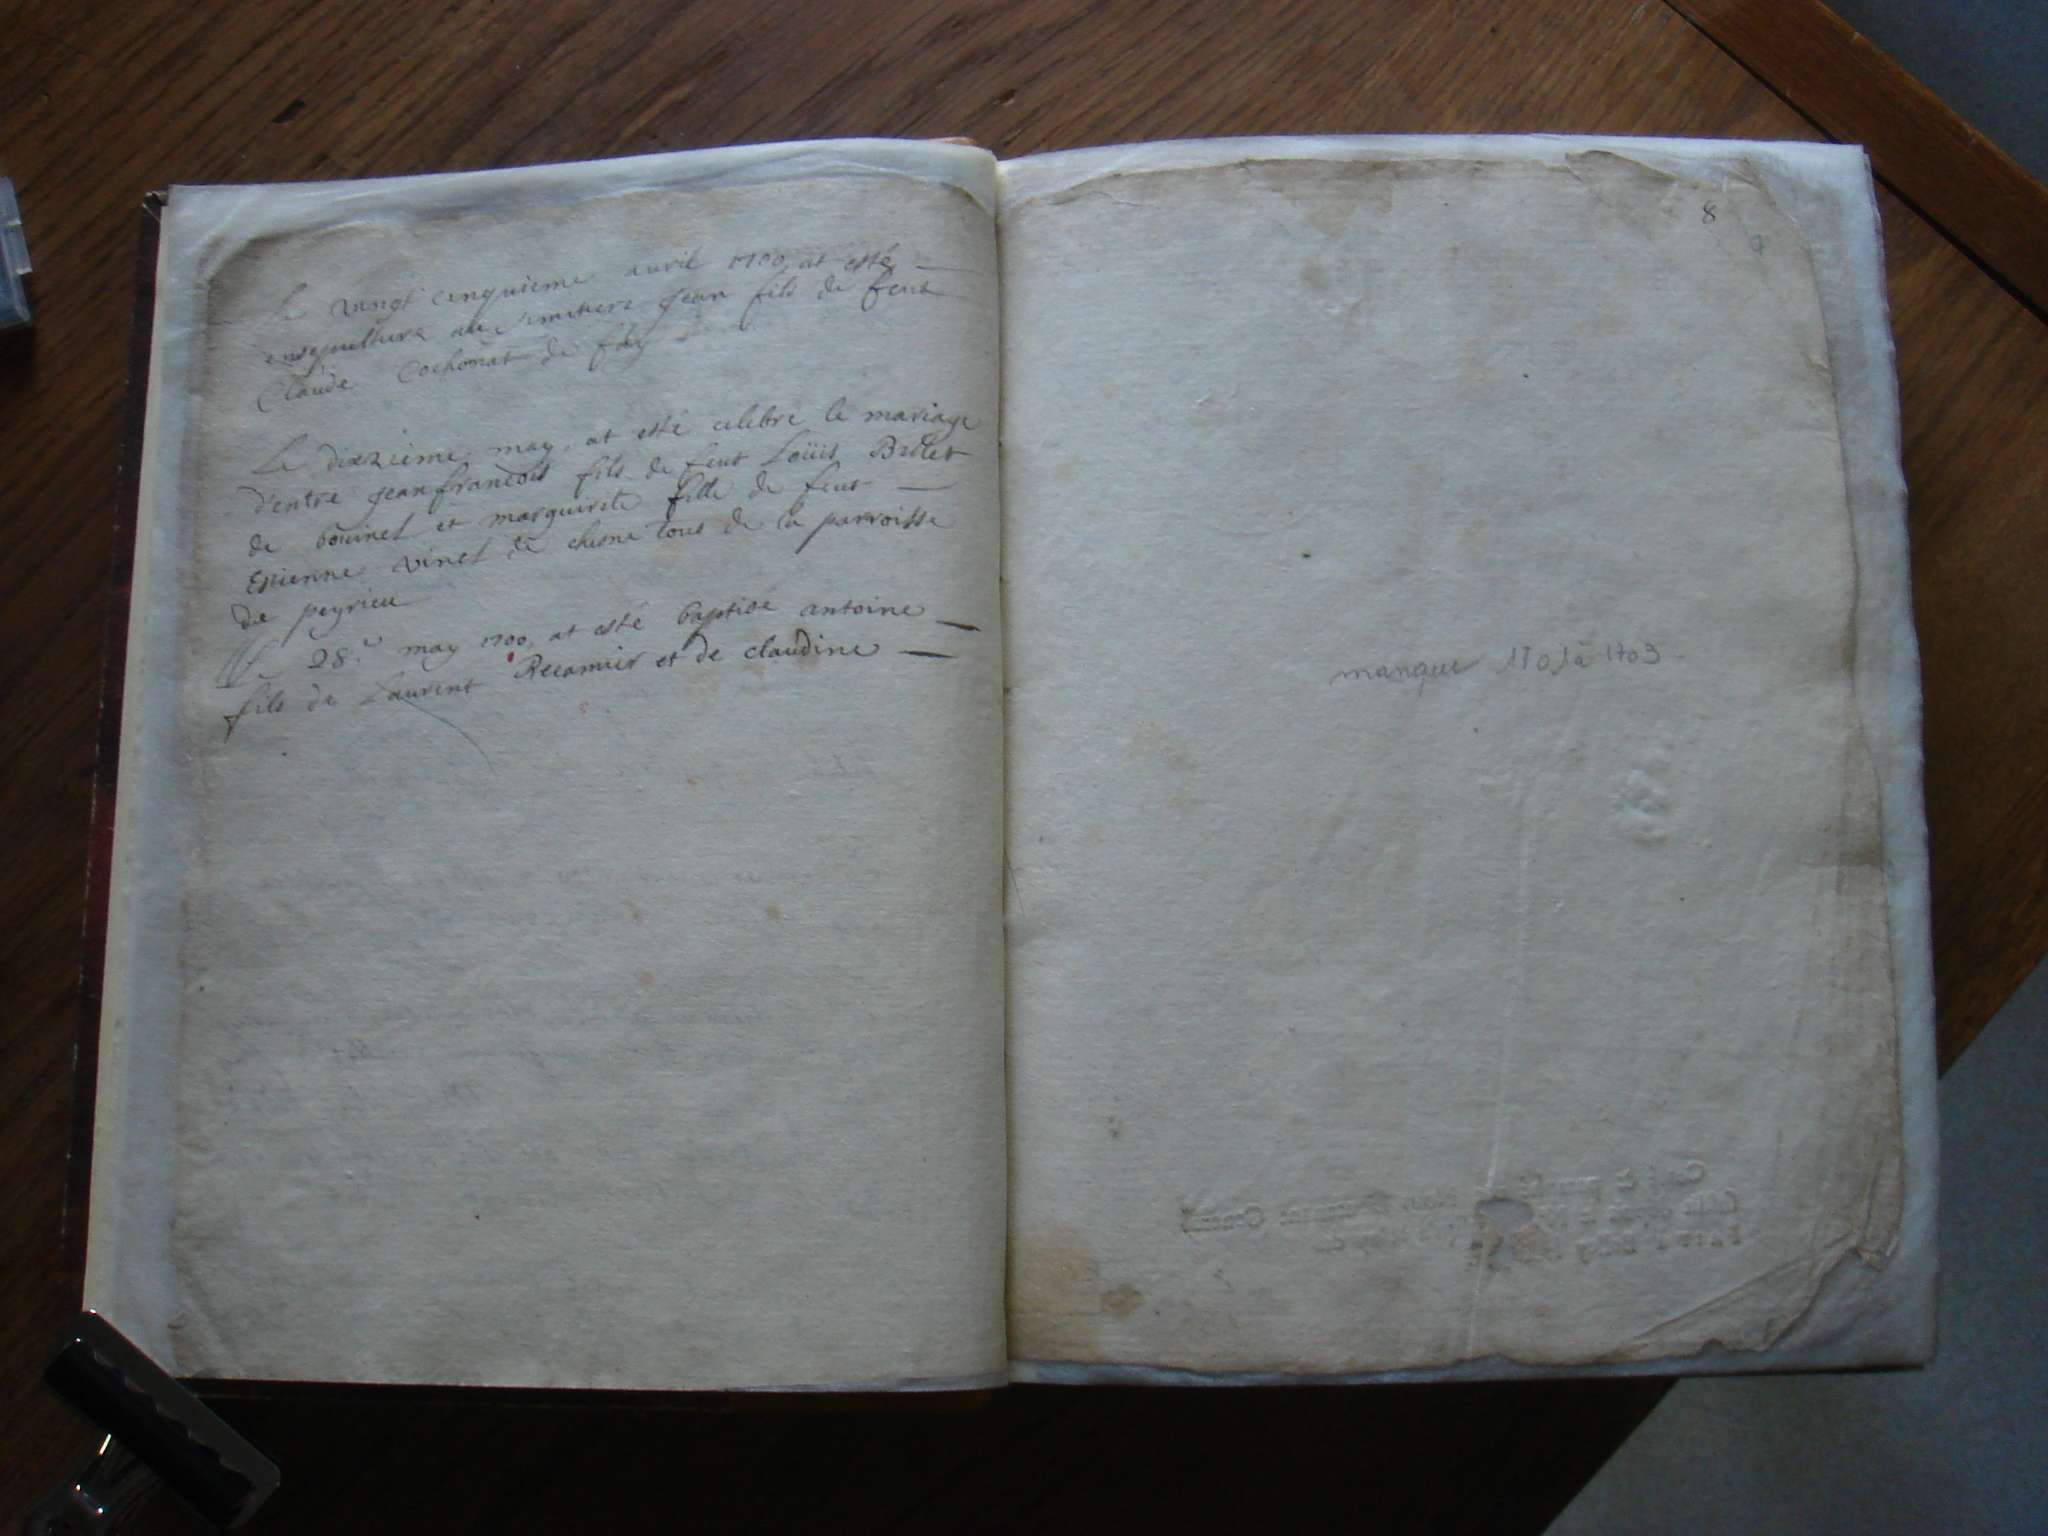 Le vingt cinquieme auril 1700, at esté
ensepulture au Cimitiere Jean fils de feut
Claude Cochonat de fay
Le dixzieme may, at esté celebre le mariage
d'entre Jeanfrancois fils de feut Loüis Brilet
de bouinel et marguirite fille de feut
Estienne vinel de chesne tous de la parroisse
de peyrieu
Le 28.e may 1700, at esté baptisé antoine
fils de Laurent Recamier et de claudine
8
manque 1701 à 1703